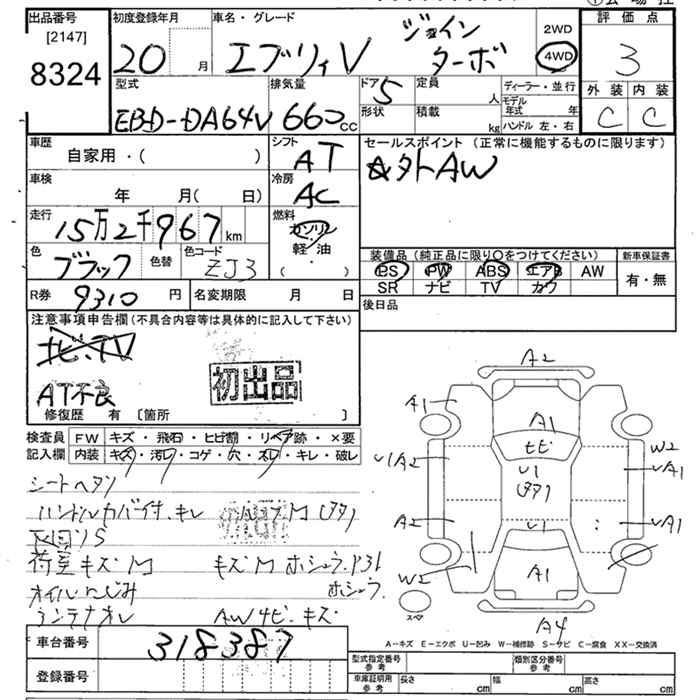 出品番号 初度登録年月 車名・グレード 評価点
[2147]
8324
20 月 エブリィV ジョイン ターボ 2WD 4WD 3
型式 排気量 ドア 5 定員 人 ディーラー・並行 外装 内装
EBD-DA64V 660cc 形状 積載 kg モデル年式 年 C C
ハンドル 左・右
車歴 シフト セールスポイント (正常に機能するものに限ります)
自家用・( ) AT ☆外AW
車検 冷房
年 月( 日) AC
走行 燃料
15万2千967 km ガソリン
軽・油
( ・ )
色 ブラック 色替 色コード ZJ3
装備品 (純正品に限り○をつけてください) 新車保証書
PS PW ABS エアB AW 有・無
SR ナビ TV カワ
R券 9310 円 名変期限 月 日 後日品
注意事項申告欄 (不具合内容等は具体的に記入して下さい)
ナビ、TV
AT不良
初出品
修復歴 有 〔箇所 〕
検査員 FW キズ・飛石・ヒビ割・リペア跡・×要
記入欄 内装 キズ・汚レ・コゲ・穴・スレ・キレ・破レ
シートヘタリ
ハンドルカバー付、キレ
荷室キズM キズM
オイルにじみ
アンテナオレ AWサビ・キズ
A2
A1 A1
ヒビ W2
U1A2 U1 UA1
A2 U1 UA1
W2 A1
スペア
A4
A-キズ E-エクボ U-凹み W-補修跡 S-サビ C-腐食 XX-交換済
車台番号 318387
登録番号
型式指定番号 参考 類別区分番号 参考
車庫証明用 参考 長さ cm 幅 cm 高さ cm